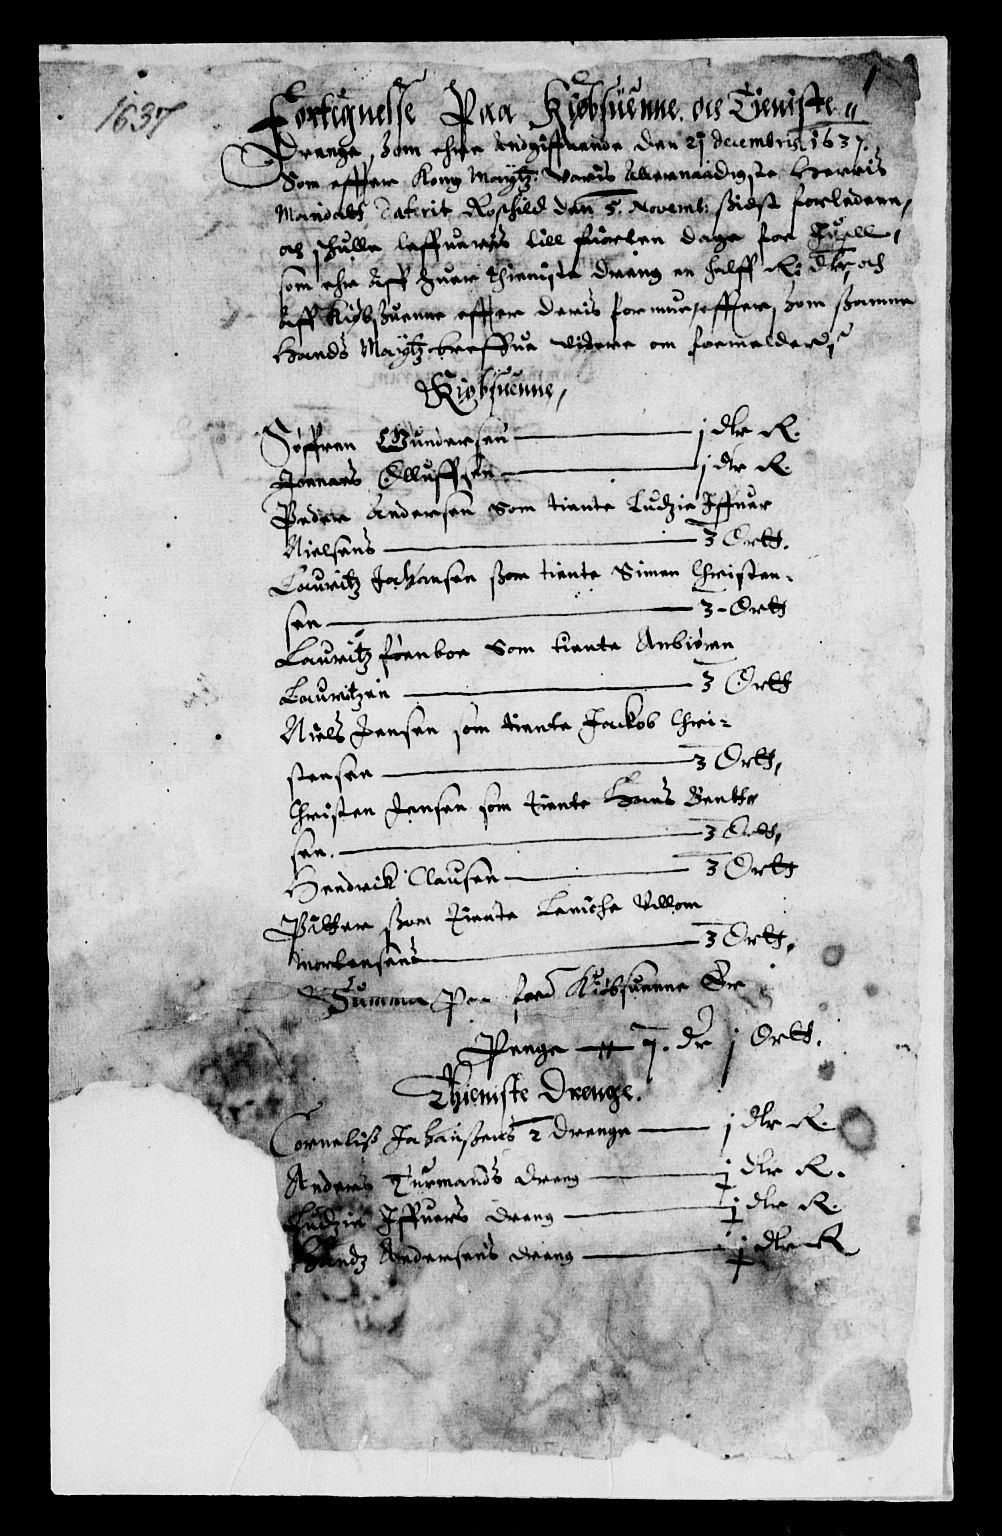 1637
1
Fortegnelse Paa Kiøbsuenne. oc Tieniste
Drenge, Som ehre Udgiffuende den 21 decembris 1637.
Som effter Kong Maytz: Voris Allernaadigste Herris
Mandatz daterit Roschild den 5. Novemb: sidst forleden,
och schulle leffueris till fiorten dage for Juell,
som ehr Aff huer thieniste dreng en halff R. dlr, och
Aff Kiøbsuenne effter deris formue, effter som samme
Hands Maytz breffue videre om formelder,
Kiøbsuenne,
Søffren Gundersen j dlr R.
Joenaes Olluffsen j dlr R.
Peder Andersen Som tiente Ludzie Iffuer
Nielsens 3 Ortt.
Lauritz Jahansen som tiente Simen Christen-
sen 3 Ortt
Lauritz föenboe Som tiente Anbiören
Lauritzen 3 Ortt
Niels Jensen som tiente Jackob Chri-
stensen 3 Ortt,
Christen Jensen som tiente Hans Bentt
sen. 3 Ortt,
Hendrick Clausen 3 Ortt
Pitter som tiente Leniche Villom
Mortensens 3 Ortt,
Summa Paa ford Kiöbsuenne Er
Penge 7. dr j Ortt.
Thieniste Drenge.
Corneliss Jahanssens 2 drenge j dlr R.
Anders Turmands dreng j dlr R.
Ludzie Iffuers dreng j dlr R.
Handz Andersens dreng j dlr R